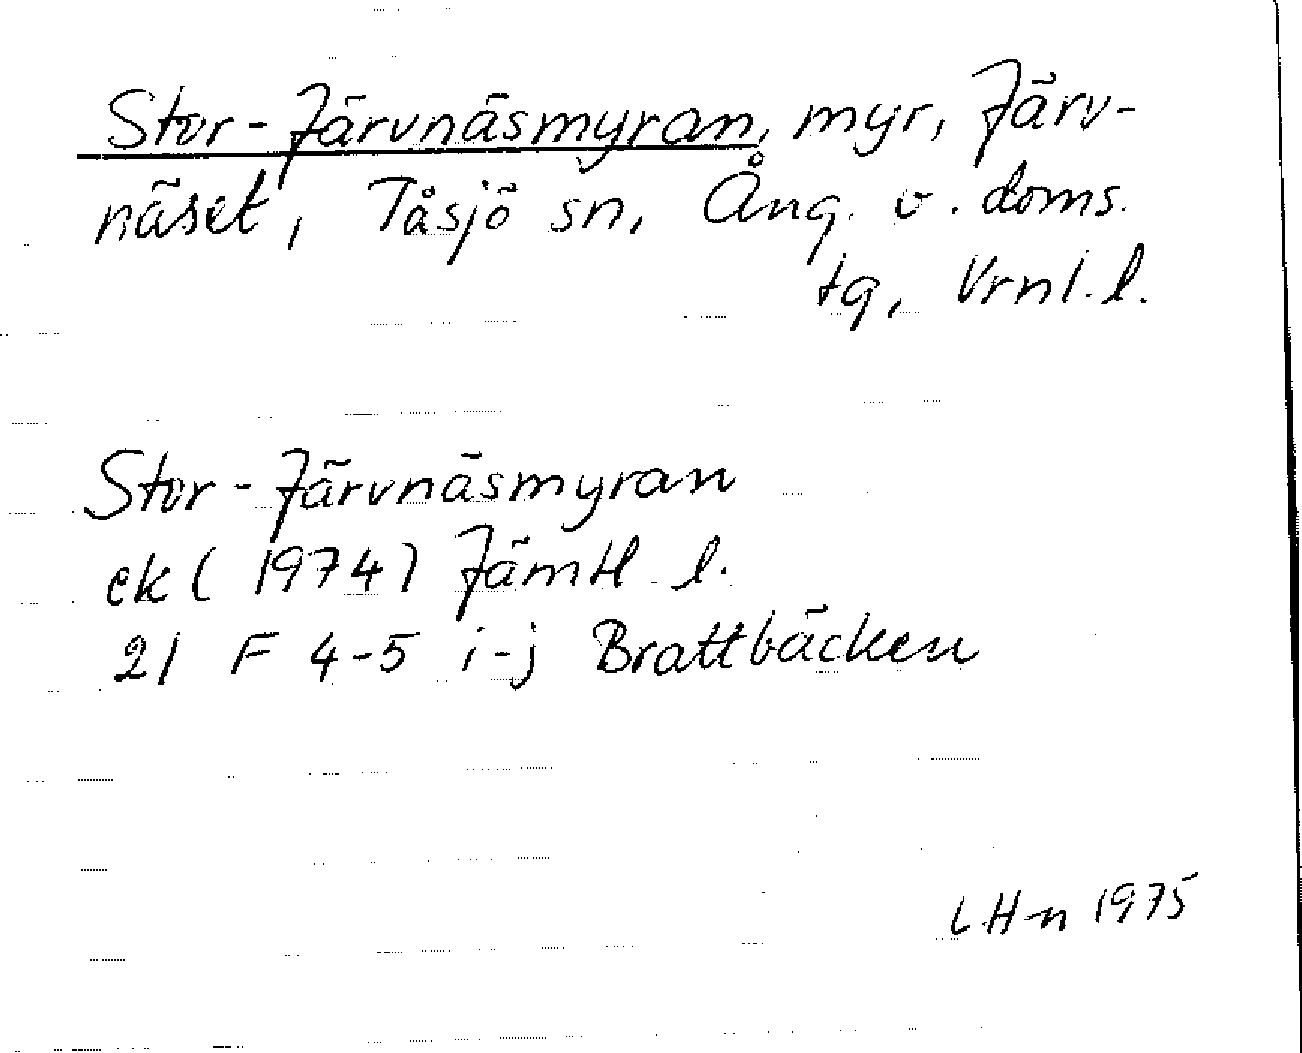 Stor-Järvnäsmyran, myr, Järv-
näset, Tåsjö sn, Ång. v. doms.
tg, Vrnl. l.
Stor-Järvnäsmyran
ek (1974) Jämtl. l.
21 F 4-5 i-j Brattbäcken
L H-n 1975